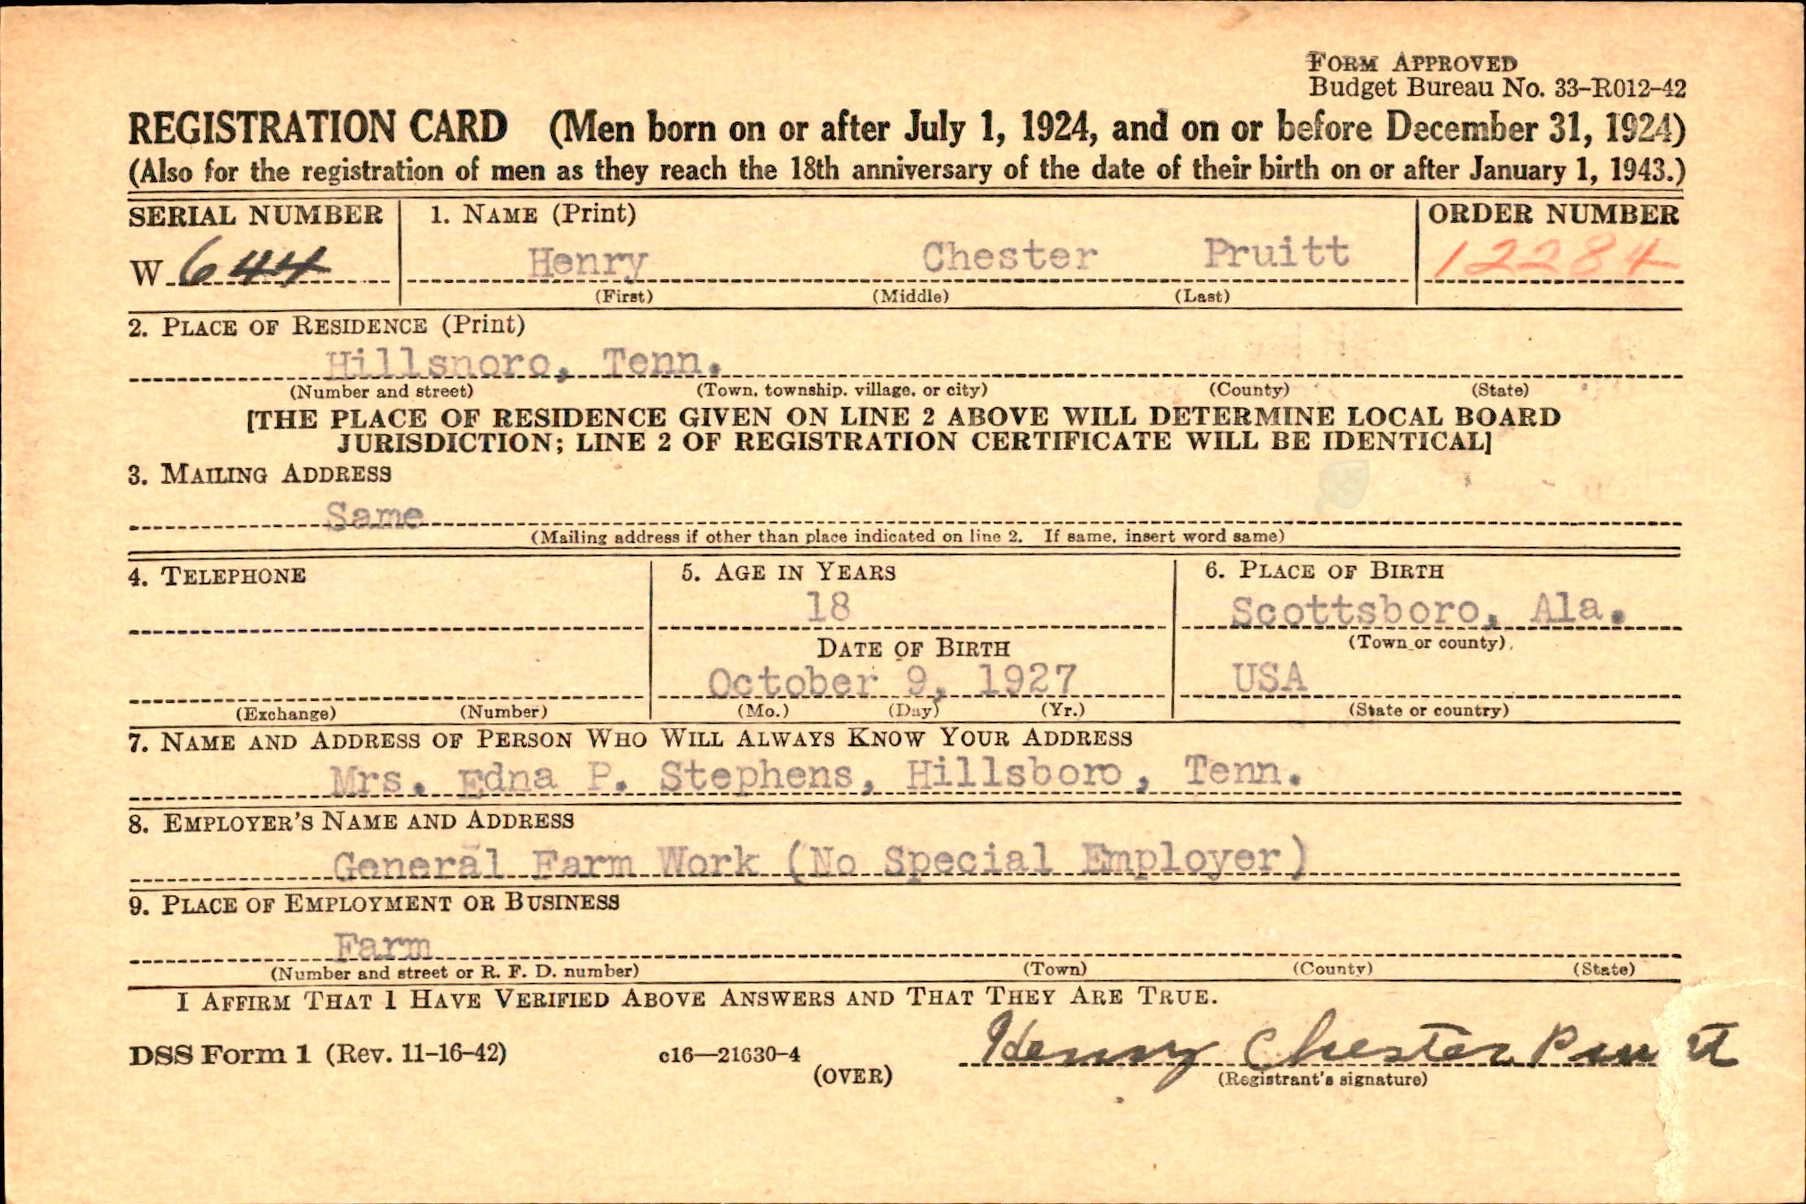 FORM APPROVED
Budget Bureau No. 33-R012-42
REGISTRATION CARD (Men born on or after July 1, 1924, and on or before December 31, 1924)
(Also for the registration of men as they reach the 18th anniversary of the date of their birth on or after January 1, 1943.)
SERIAL NUMBER 1. NAME (Print) ORDER NUMBER
W 644 Henry Chester Pruitt 12284
(First) (Middle) (Last)
2. PLACE OF RESIDENCE (Print)
Hillsnoro, Tenn.
(Number and street) (Town, township, village, or city) (County) (State)
[THE PLACE OF RESIDENCE GIVEN ON LINE 2 ABOVE WILL DETERMINE LOCAL BOARD
JURISDICTION; LINE 2 OF REGISTRATION CERTIFICATE WILL BE IDENTICAL]
3. MAILING ADDRESS
Same
(Mailing address if other than place indicated on line 2. If same, insert word same)
4. TELEPHONE 5. AGE IN YEARS 6. PLACE OF BIRTH
18 Scottsboro, Ala.
DATE OF BIRTH (Town or county)
October 9, 1927 USA
(Exchange) (Number) (Mo.) (Day) (Yr.) (State or country)
7. NAME AND ADDRESS OF PERSON WHO WILL ALWAYS KNOW YOUR ADDRESS
Mrs. Edna P. Stephens, Hillsboro, Tenn.
8. EMPLOYER'S NAME AND ADDRESS
General Farm Work (No Special Employer)
9. PLACE OF EMPLOYMENT OR BUSINESS
Farm
(Number and street or R. F. D. number) (Town) (County) (State)
I AFFIRM THAT I HAVE VERIFIED ABOVE ANSWERS AND THAT THEY ARE TRUE.
DSS Form 1 (Rev. 11-16-42) c16—21630-4 (OVER) Henry Chester Pruitt
(Registrant's signature)